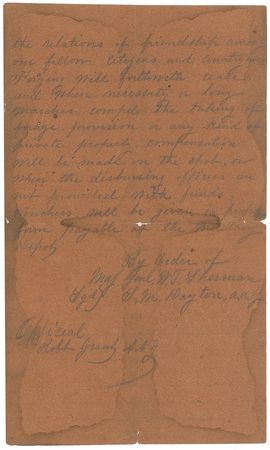 the relations of friendship among
our fellow citizens and countrymen
Foraging will forthwith cease
and when necessity or long
marches compel the taking of
forage provision or any kind of
private property, compensation
will be made on the spot, or
when the disbursing officers are
not provided with funds
vouchers will be given in proper
form payable at the nearest
Depot
By Order of
Maj Genl W. T. Sherman
Sgd L. M. Dayton, A.A.G
Official
Robt Grant A.A.G